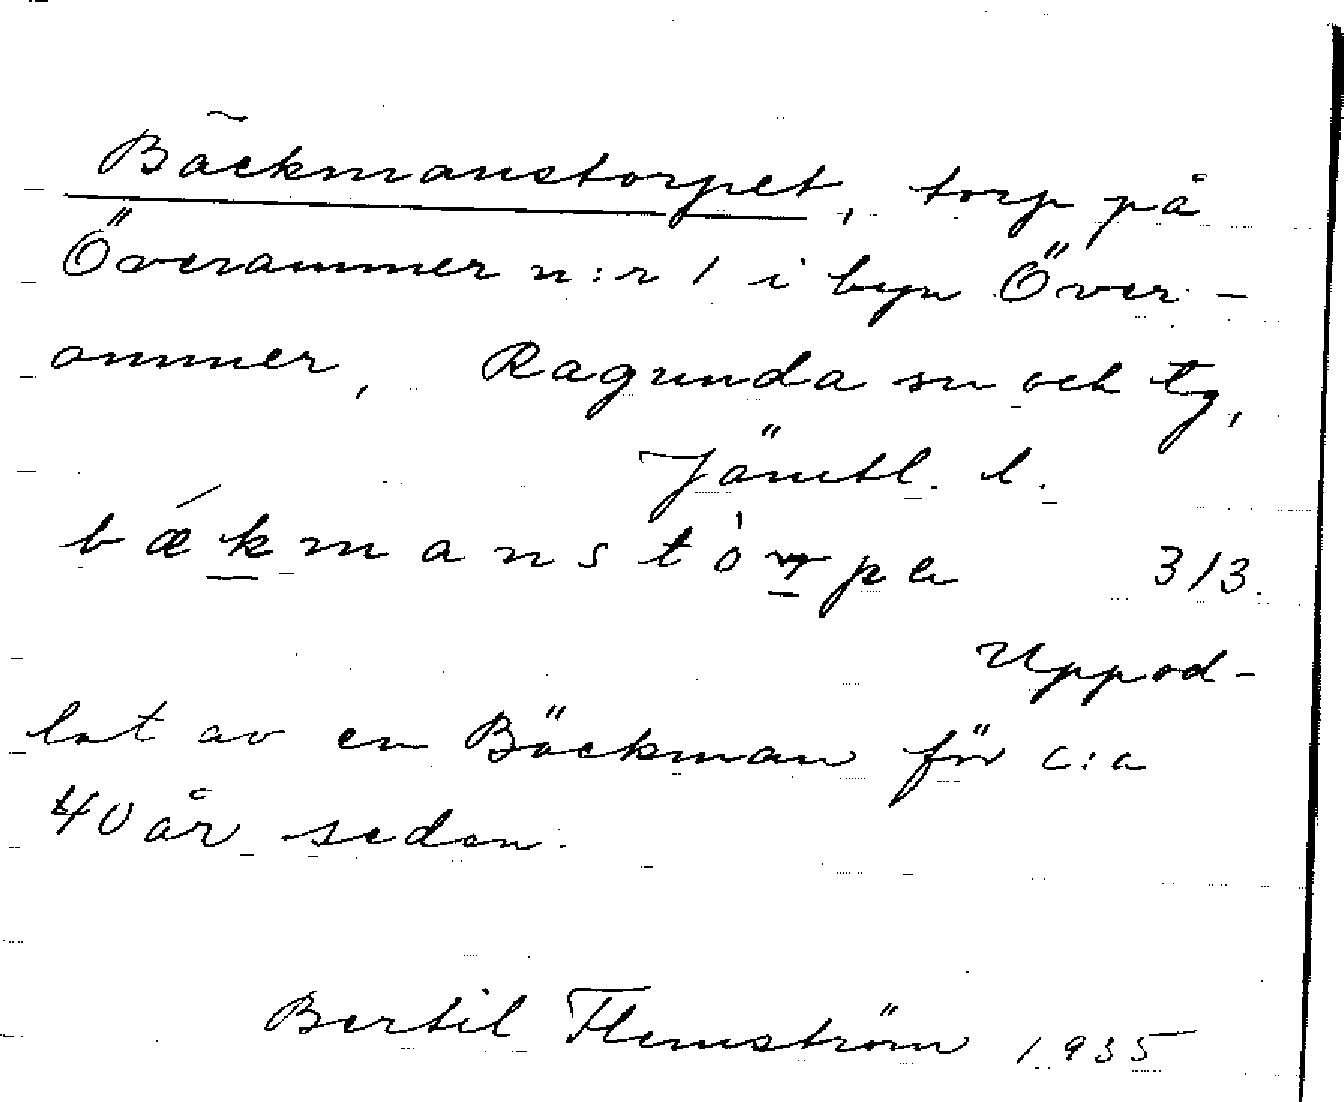 Bäckmanstorpet, torp på
Överammer n:r 1 i byn Över-
ammer, Ragunda sn och tg,
Jämtl. l.
bǽkmanstòrpe 3/3.
Uppod-
lat av en Bäckman för c:a
40 år sedan.
Bertil Flemström 1935